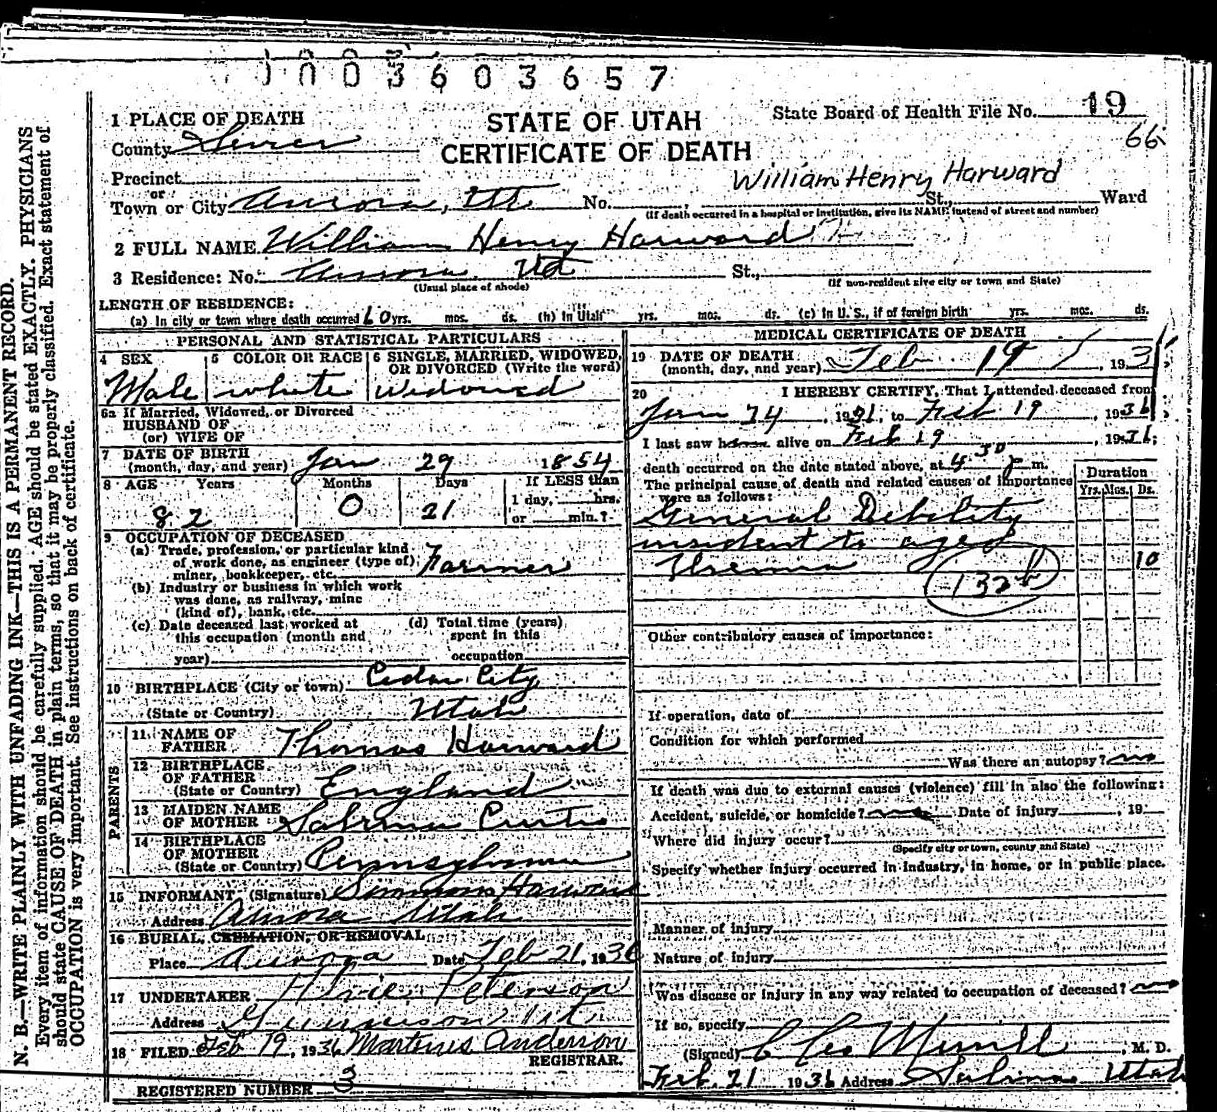 1003603657
1 PLACE OF DEATH
STATE OF UTAH
State Board of Health File No. 19
County Sevier
CERTIFICATE OF DEATH
66
Precinct
William Henry Harward
or
Town or City Aurora, Ut. No. St., Ward
(If death occurred in a hospital or institution, give its NAME instead of street and number)
2 FULL NAME William Henry Harward
3 Residence: No. Aurora, Ut St.,
(Usual place of abode) (If non-resident give city or town and State)
LENGTH OF RESIDENCE:
(a) In city or town where death occurred 60 yrs. mos. ds. (b) In Utah yrs. mos. ds. (c) In U. S., if of foreign birth yrs. mos. ds.
PERSONAL AND STATISTICAL PARTICULARS
4 SEX 5 COLOR OR RACE 6 SINGLE, MARRIED, WIDOWED, OR DIVORCED (Write the word)
Male white Widowed
6a If Married, Widowed, or Divorced
HUSBAND OF
(or) WIFE OF
7 DATE OF BIRTH
(month, day, and year) Jan 29 1854
8 AGE Years Months Days If LESS than
1 day, hrs.
82 0 21 or min.?
9 OCCUPATION OF DECEASED
(a) Trade, profession, or particular kind
of work done, as engineer (type of),
miner, bookkeeper, etc. Farmer
(b) Industry or business in which work
was done, as railway, mine
(kind of), bank, etc.
(c) Date deceased last worked at
this occupation (month and
year)
(d) Total time (years)
spent in this
occupation
10 BIRTHPLACE (City or town) Cedar City
(State or Country) Utah
PARENTS
11 NAME OF
FATHER Thomas Harward
12 BIRTHPLACE
OF FATHER
(State or Country) England
13 MAIDEN NAME
OF MOTHER Sabrina Curtis
14 BIRTHPLACE
OF MOTHER
(State or Country) Pennsylvania
15 INFORMANT (Signature) Simmons Harward
Address Aurora Utah
16 BURIAL, CREMATION, OR REMOVAL
Place Aurora Date Feb 21, 1936
17 UNDERTAKER Peterson
Address Gunnison Ut.
18 FILED Feb 19, 1936 Martinus Anderson
REGISTRAR.
REGISTERED NUMBER 3
MEDICAL CERTIFICATE OF DEATH
19 DATE OF DEATH
(month, day, and year) Feb 19, 193
20 I HEREBY CERTIFY, That I attended deceased from
Jan 24, to Feb 19, 1936
I last saw h alive on Feb 19, 1936;
death occurred on the date stated above, at 4 30 p m.
The principal cause of death and related causes of importance
were as follows:
Duration
Yrs. Mos. Ds.
General Debility
insident to aged
Uremia 10
132b
Other contributory causes of importance:
If operation, date of
Condition for which performed
Was there an autopsy? no
If death was due to external causes (violence) fill in also the following:
Accident, suicide, or homicide? Date of injury , 19
Where did injury occur?
(Specify city or town, county and State)
Specify whether injury occurred in industry, in home, or in public place.
Manner of injury
Nature of injury
Was disease or injury in any way related to occupation of deceased? no
If so, specify
(Signed) , M. D.
Feb. 21 1936 Address Salina Utah
N. B.—WRITE PLAINLY WITH UNFADING INK—THIS IS A PERMANENT RECORD.
Every item of information should be carefully supplied. AGE should be stated EXACTLY. PHYSICIANS
should state CAUSE OF DEATH in plain terms, so that it may be properly classified. Exact statement of
OCCUPATION is very important. See instructions on back of certificate.